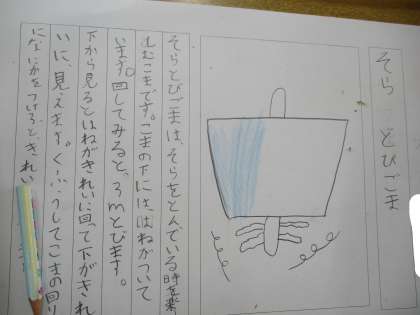 そら とびごま
そらとびごまは、そらをとんでいる時を楽
しむこまです。こまの下にははねがついて
います。回してみると、3mとびます。
下から見るとはねがきれいに回って下がきれ
いに、見えます。くふうしてこまの回り
にないかをつけるときれい